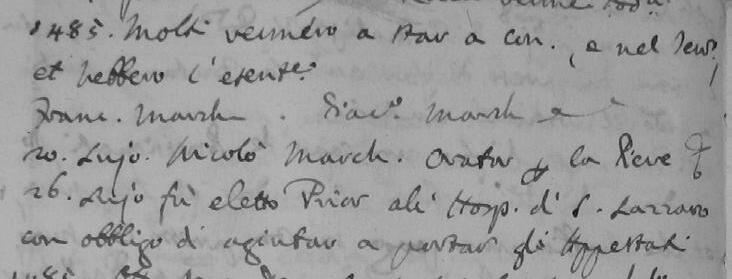 1485. Molti vennero a star a Con. , e nel Terr.
et hebbero l'esent.e
Franc. March . Giac.o March
20. Lujo. Nicolò March. Orator la Pieve
26. Lujo fù eletto Prior ali Hosp. di S. Lazzaro
con obbligo di agiutar a portar gli Appestati
1485.